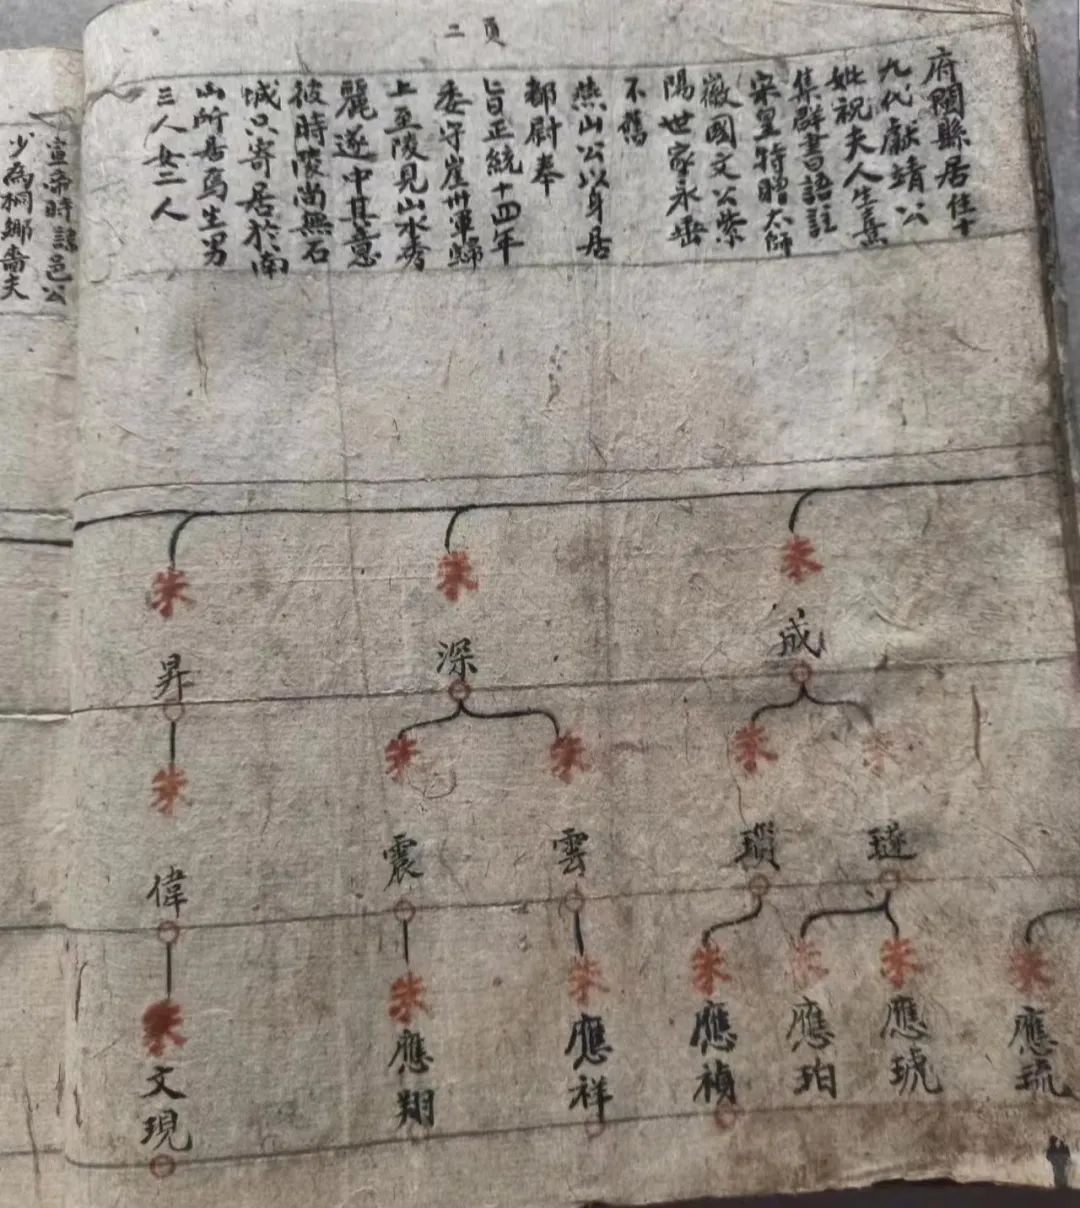 二頁
府閩縣居住十
九代獻靖公
妣祝夫人生熹
集群書語註
宋皇特贈太師
徽國文公紫
陽世家永垂
不舊
燕山公以身居
都尉奉
旨正統十四年
委守崖州軍歸
上至陵見山水秀
麗遂中其意
彼時陵尚無石
城只寄居於南
山所居焉生男
三人女二人
宣帝時諫邑公
少為桐鄉嗇夫
朱成
朱深
朱昇
朱璲
朱瑣
朱雲
朱震
朱偉
朱應琉
朱應琥
朱應珀
朱應禎
朱應祥
朱應翔
朱文現